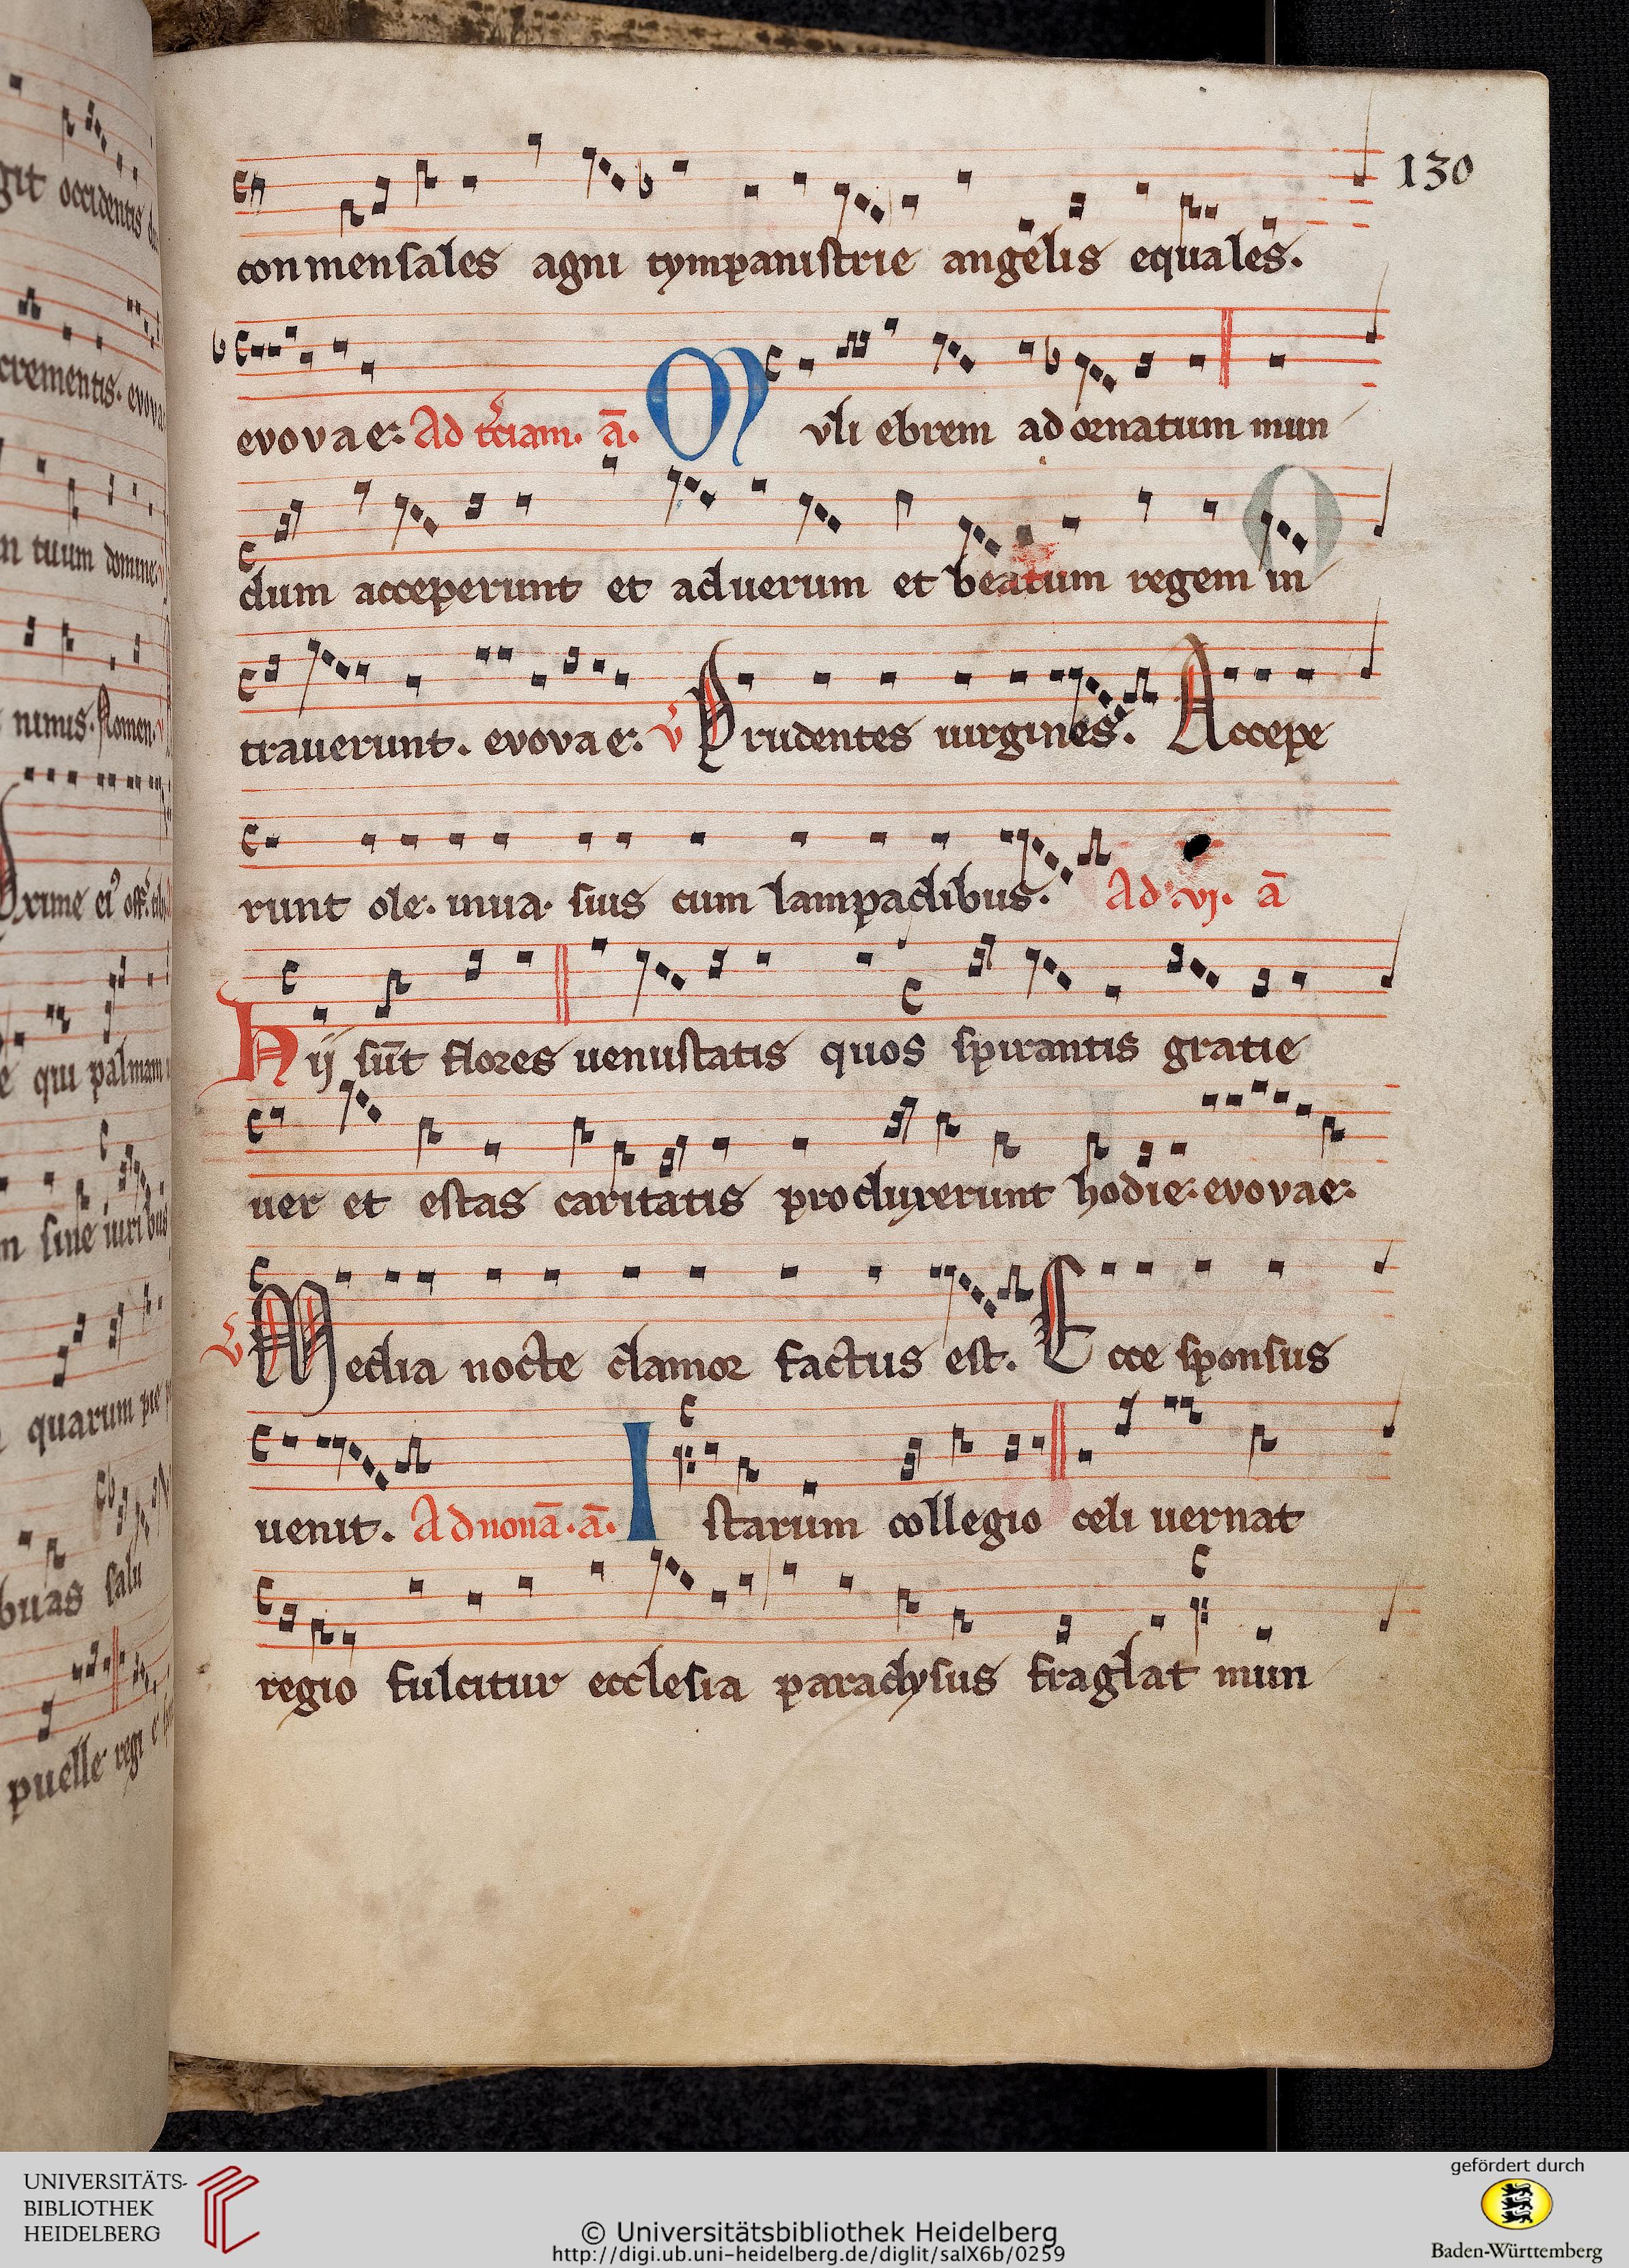 130
conmensales agni tympanistrie angelis equales.
evovae. Ad tciam. ā. Mvli ebrem ad ornatum mun
dum acceperunt et ad uerum et beatum regem in
trauerunt. evovae. v Prudentes uirgines. Accepe
runt ole. in ua. suis cum lampadibus. Ad .vj. ā
Hij sūt flores uenustatis quos spirantis gratie
uer et estas caritatis produxerunt hodie. evovae.
v Media nocte clamor factus est. Ecce sponsus
uenit. Ad nonā. ā. Istarum collegio celi uernat
regio fulcitur ecclesia paradysus fraglat mun
git occidentis
crementis. evova
n tuum domine
nimis. Nomen. v
e qui palmam
n sine iuribus
quarum pie
buas salu
puelle regi
UNIVERSITÄTS-
BIBLIOTHEK
HEIDELBERG
© Universitätsbibliothek Heidelberg
http://digi.ub.uni-heidelberg.de/diglit/salX6b/0259
gefördert durch
Baden-Württemberg